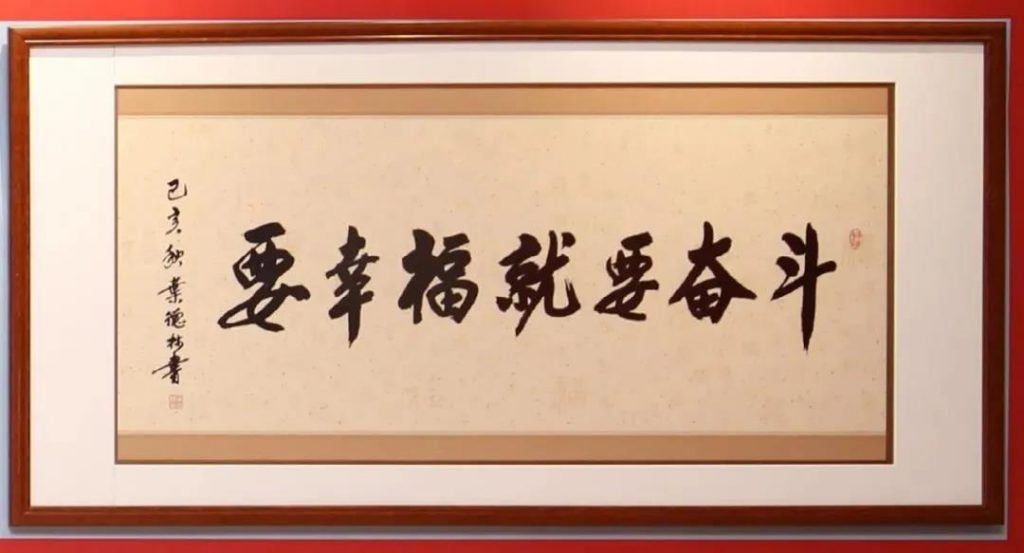 要幸福就要奋斗
己亥秋叶德林书